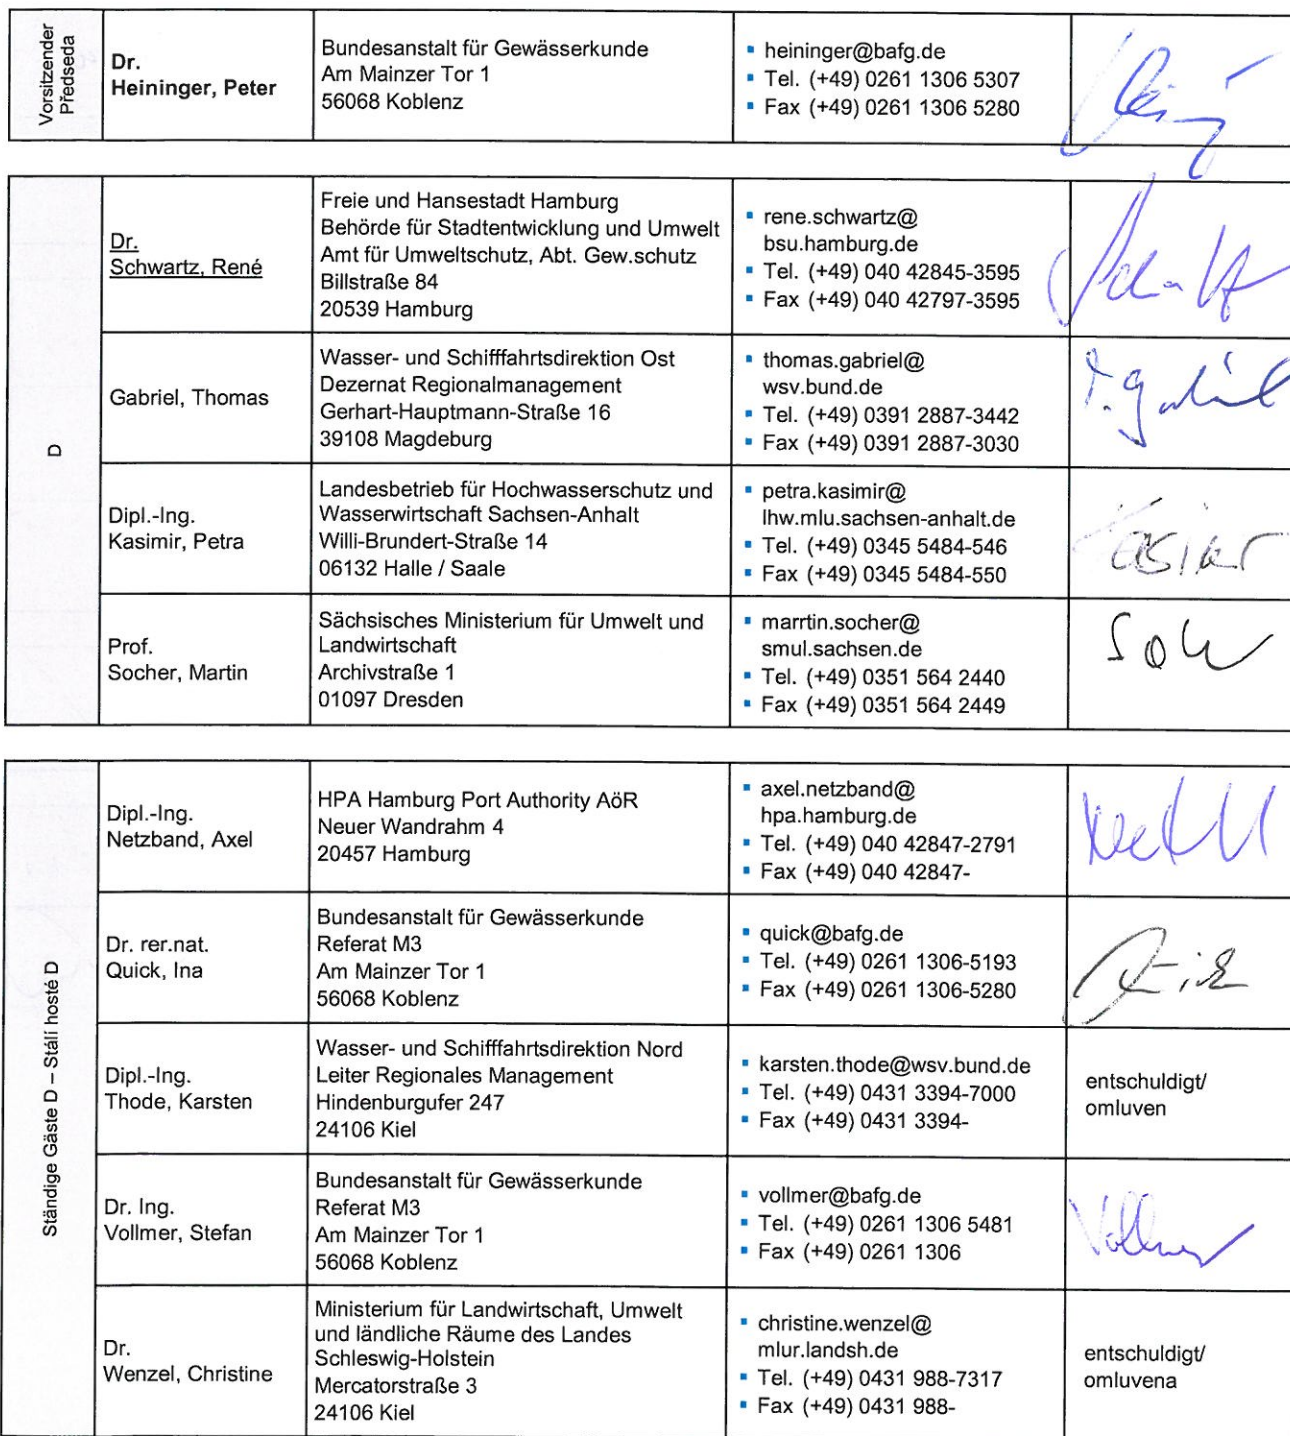 Vorsitzender
Předseda
Dr.
Heininger, Peter
Bundesanstalt für Gewässerkunde
Am Mainzer Tor 1
56068 Koblenz
▪ heininger@bafg.de
▪ Tel. (+49) 0261 1306 5307
▪ Fax (+49) 0261 1306 5280
D
Dr.
Schwartz, René
Freie und Hansestadt Hamburg
Behörde für Stadtentwicklung und Umwelt
Amt für Umweltschutz, Abt. Gew.schutz
Billstraße 84
20539 Hamburg
▪ rene.schwartz@
bsu.hamburg.de
▪ Tel. (+49) 040 42845-3595
▪ Fax (+49) 040 42797-3595
Gabriel, Thomas
Wasser- und Schifffahrtsdirektion Ost
Dezernat Regionalmanagement
Gerhart-Hauptmann-Straße 16
39108 Magdeburg
▪ thomas.gabriel@
wsv.bund.de
▪ Tel. (+49) 0391 2887-3442
▪ Fax (+49) 0391 2887-3030
T. Gabriel
Dipl.-Ing.
Kasimir, Petra
Landesbetrieb für Hochwasserschutz und
Wasserwirtschaft Sachsen-Anhalt
Willi-Brundert-Straße 14
06132 Halle / Saale
▪ petra.kasimir@
lhw.mlu.sachsen-anhalt.de
▪ Tel. (+49) 0345 5484-546
▪ Fax (+49) 0345 5484-550
Kasimir
Prof.
Socher, Martin
Sächsisches Ministerium für Umwelt und
Landwirtschaft
Archivstraße 1
01097 Dresden
▪ marrtin.socher@
smul.sachsen.de
▪ Tel. (+49) 0351 564 2440
▪ Fax (+49) 0351 564 2449
Ständige Gäste D – Stálí hosté D
Dipl.-Ing.
Netzband, Axel
HPA Hamburg Port Authority AöR
Neuer Wandrahm 4
20457 Hamburg
▪ axel.netzband@
hpa.hamburg.de
▪ Tel. (+49) 040 42847-2791
▪ Fax (+49) 040 42847-
Dr. rer.nat.
Quick, Ina
Bundesanstalt für Gewässerkunde
Referat M3
Am Mainzer Tor 1
56068 Koblenz
▪ quick@bafg.de
▪ Tel. (+49) 0261 1306-5193
▪ Fax (+49) 0261 1306-5280
Dipl.-Ing.
Thode, Karsten
Wasser- und Schifffahrtsdirektion Nord
Leiter Regionales Management
Hindenburgufer 247
24106 Kiel
▪ karsten.thode@wsv.bund.de
▪ Tel. (+49) 0431 3394-7000
▪ Fax (+49) 0431 3394-
entschuldigt/
omluven
Dr. Ing.
Vollmer, Stefan
Bundesanstalt für Gewässerkunde
Referat M3
Am Mainzer Tor 1
56068 Koblenz
▪ vollmer@bafg.de
▪ Tel. (+49) 0261 1306 5481
▪ Fax (+49) 0261 1306
Vollmer
Dr.
Wenzel, Christine
Ministerium für Landwirtschaft, Umwelt
und ländliche Räume des Landes
Schleswig-Holstein
Mercatorstraße 3
24106 Kiel
▪ christine.wenzel@
mlur.landsh.de
▪ Tel. (+49) 0431 988-7317
▪ Fax (+49) 0431 988-
entschuldigt/
omluvena